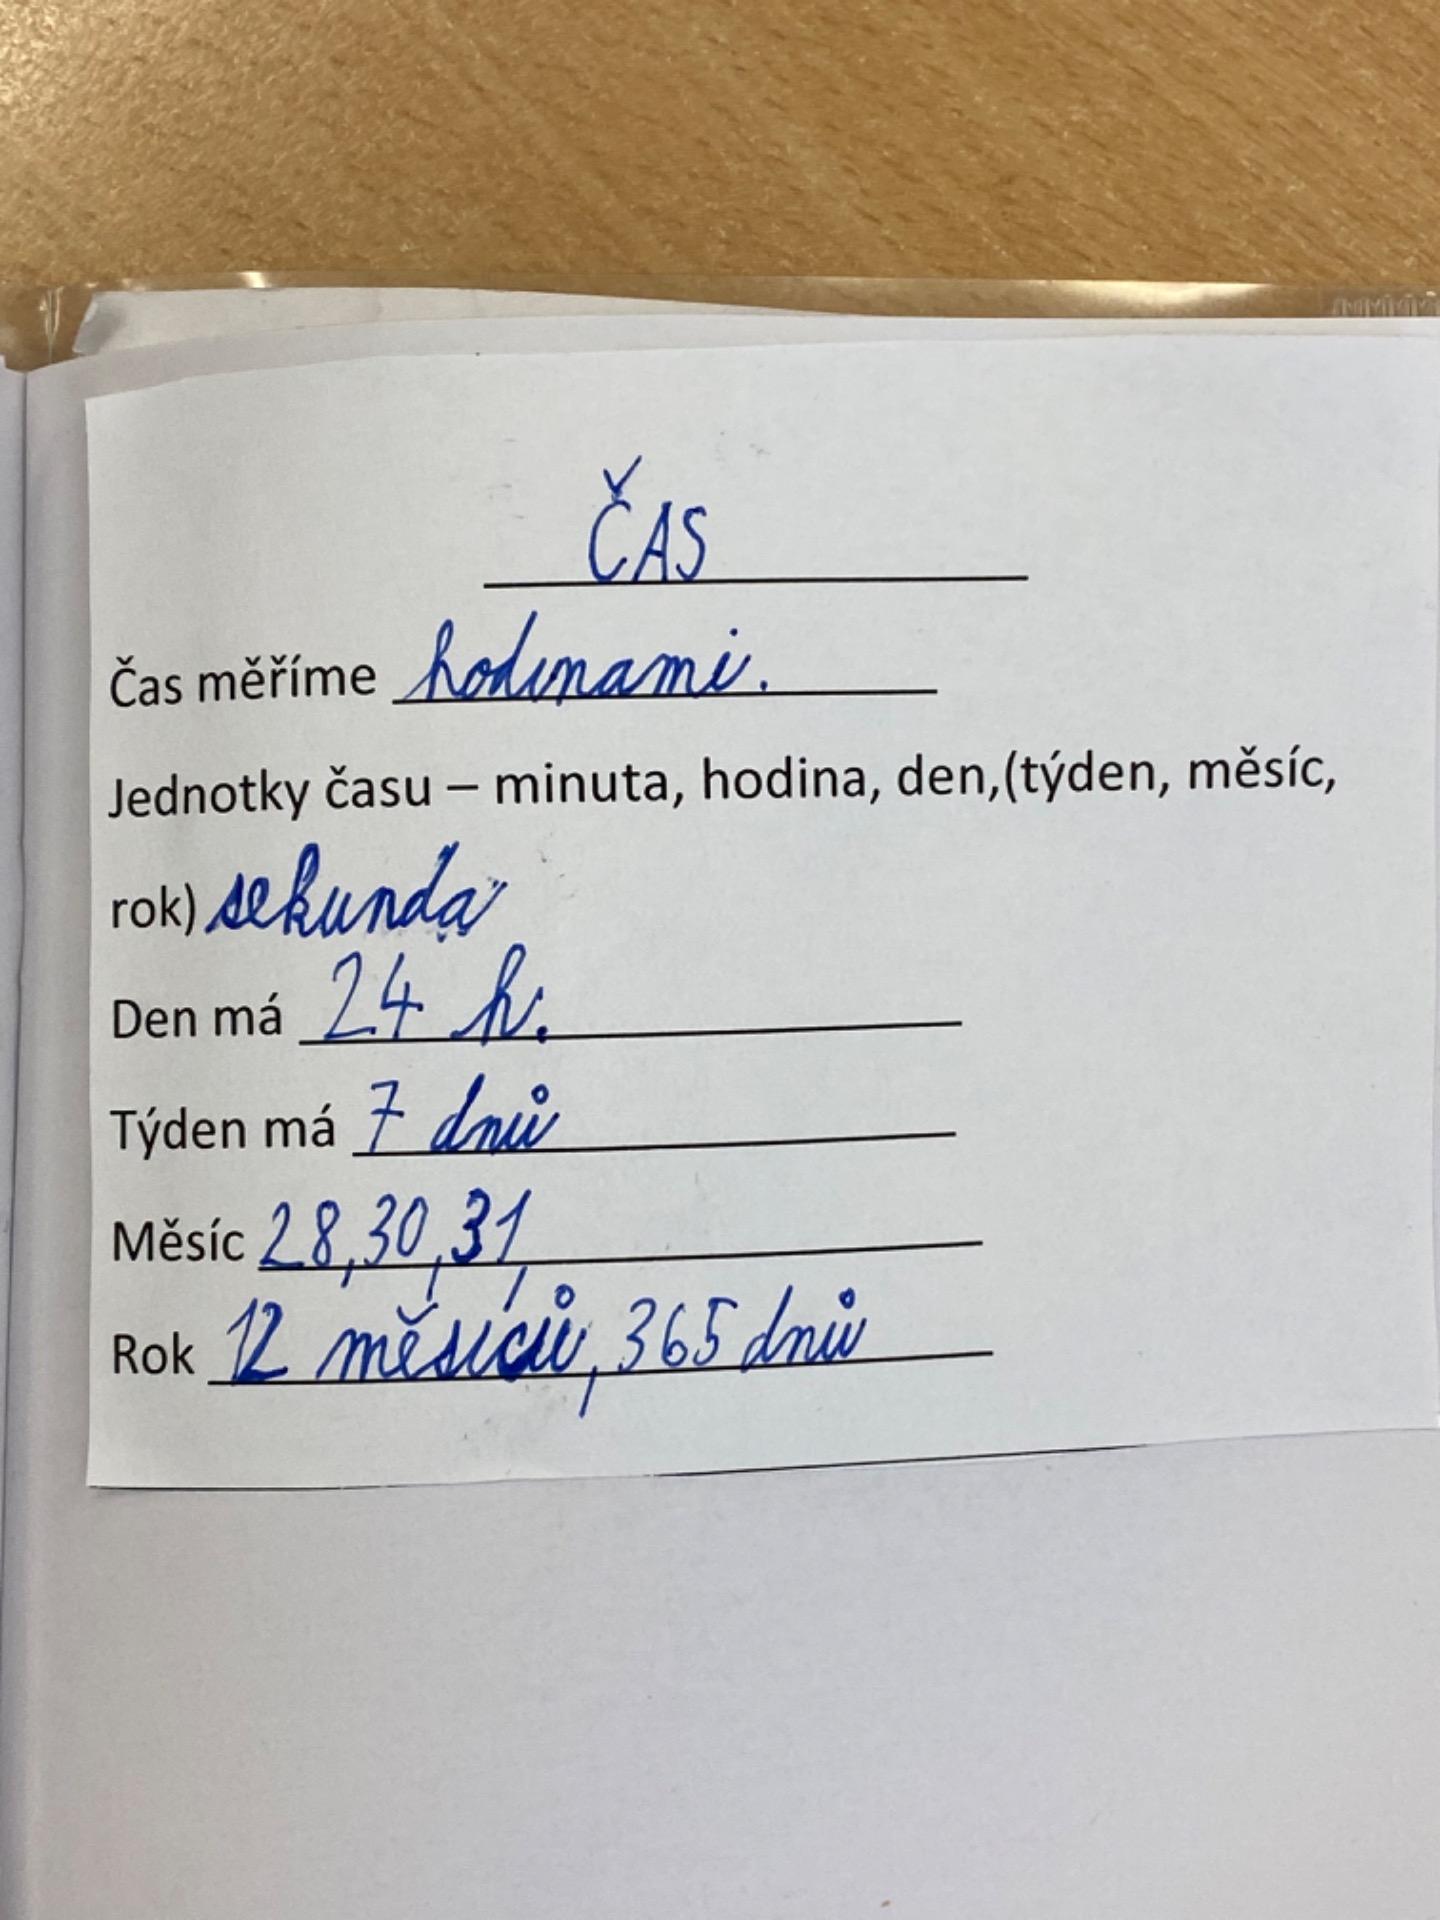 ČAS
Čas měříme hodinami.
Jednotky času – minuta, hodina, den,(týden, měsíc,
rok) sekunda
Den má 24 h.
Týden má 7 dnů
Měsíc 28,30,31
Rok 12 měsíců, 365 dnů